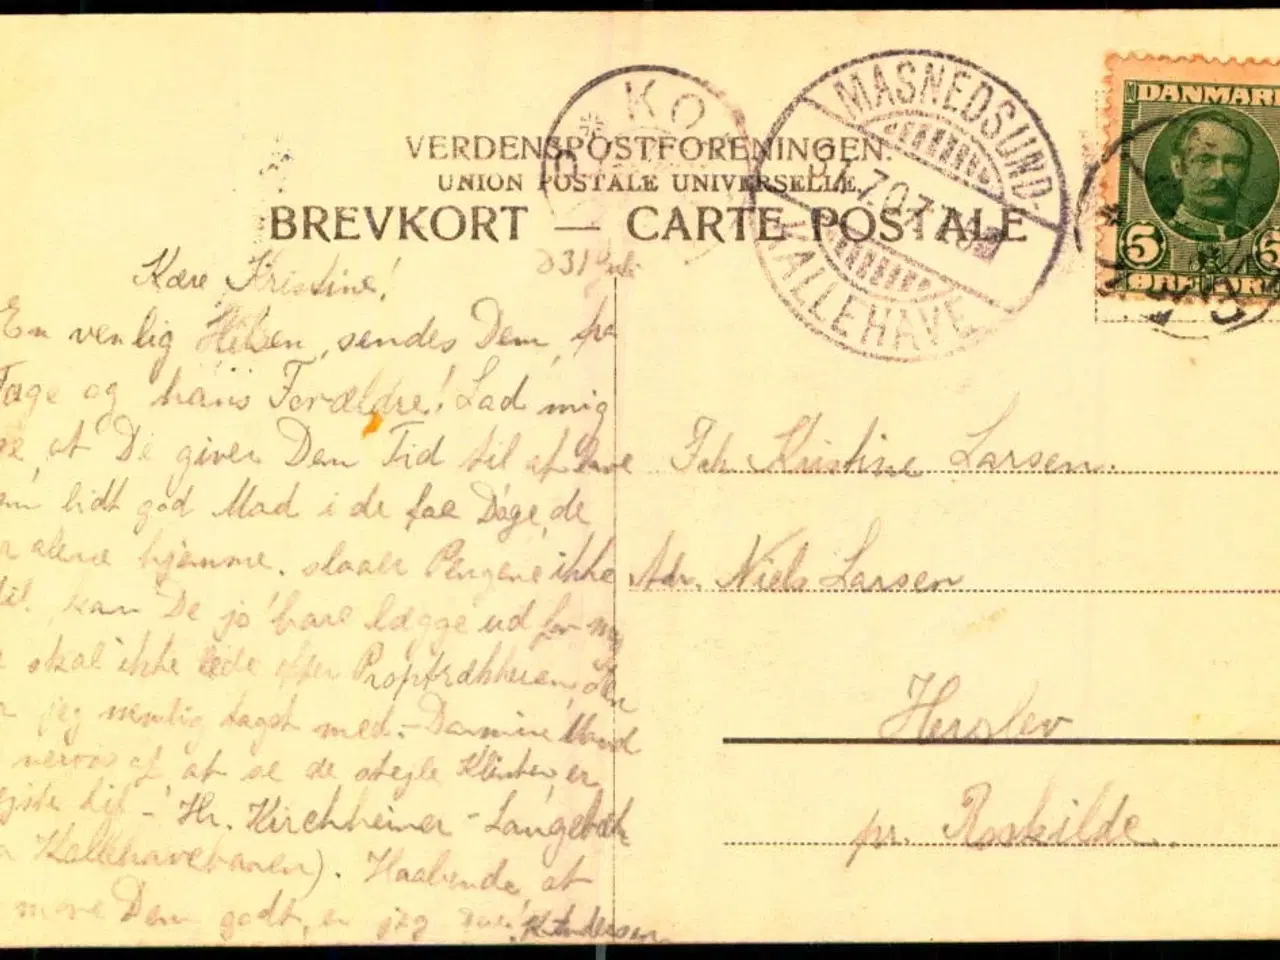 KO
MASNEDSUND-
KALLEHAVE
31.7.07.
DANMARK
5 5
ØRE ØRE
VERDENSPOSTFORENINGEN.
UNION POSTALE UNIVERSELLE.
BREVKORT — CARTE POSTALE
d 31 Juli
Kære Kristine!
En venlig Hilsen, sendes Dem, fra
Tage og hans Forældre! Lad mig
se, at De giver Dem Tid til at lave
lidt god Mad i de faa Dage, de
er alene hjemme. slaaer Pengene ikke
til, kan De jo bare lægge ud for mig
skal ikke lede efter Proptrækkeren, den
jeg nemlig taget med.- Da min Mand
nervøs af at se de stejle Klinter, er
til - Hr. Kirchheiner - Langebæk
Kallehavebanen). Haabende, at
more Dem godt, er jeg K. Andersen
Frk. Kristine Larsen.
Adr. Niels Larsen
Herslev
pr. Roskilde.